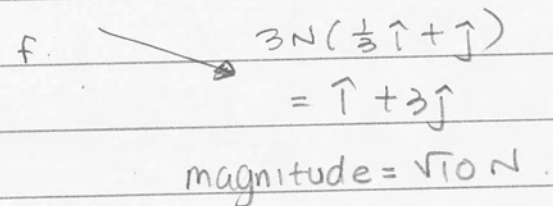 f. 3N(⅓î + ĵ)
= î + 3ĵ
magnitude = √10 N.